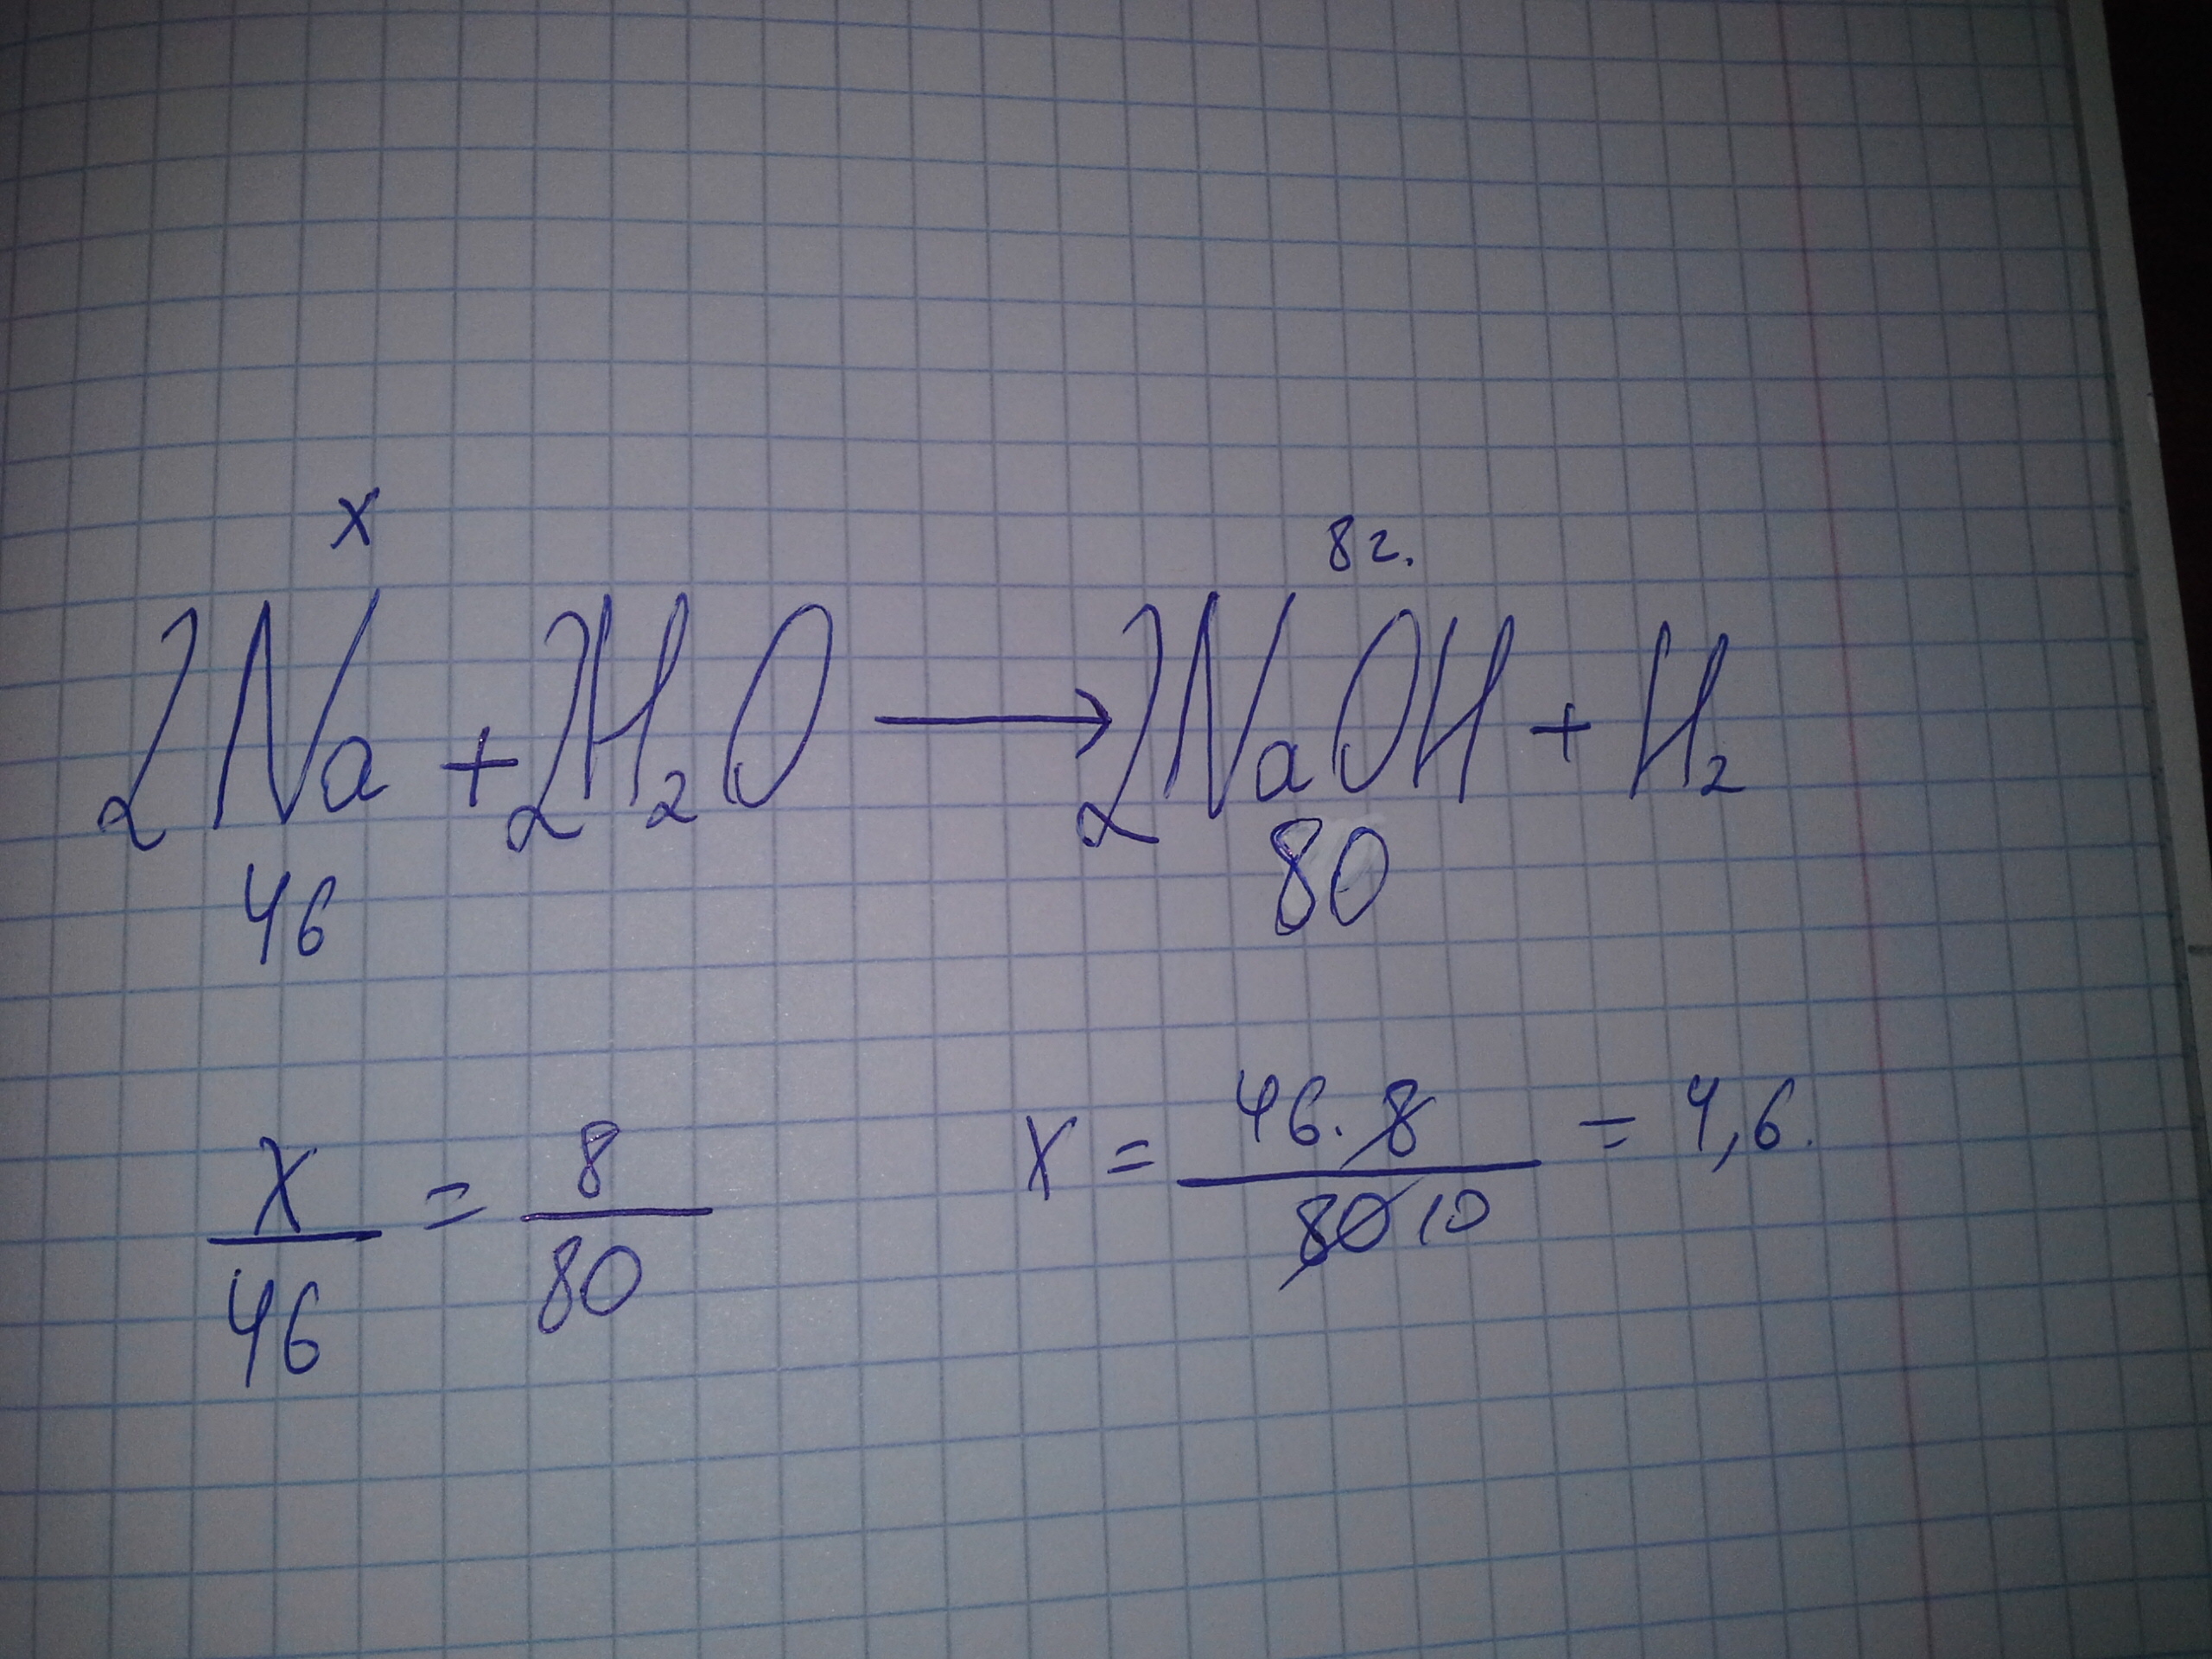 x 8г.
2Na + 2H₂O → 2NaOH + H₂
46 80
x/46 = 8/80 x = 46·8/80 10 = 4,6.